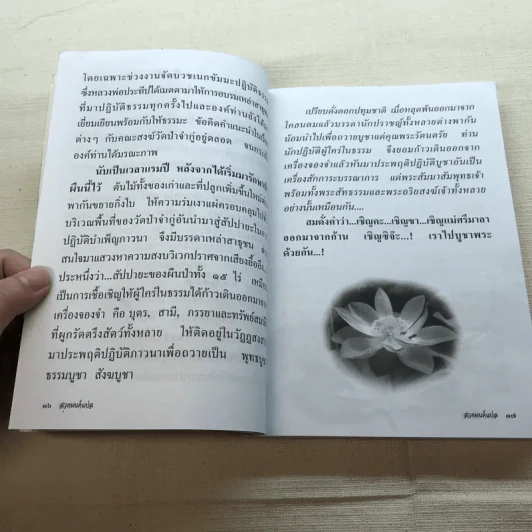 โดยเฉพาะช่วงงานจัดบวชเนกขัมมะปฏิบัติธรรม
ซึ่งหลวงพ่อประทีปได้เมตตามาให้การอบรมเหล่าสาธุ
ที่มาปฏิบัติธรรมทุกครั้งไปและองค์ท่านยังได้
เยี่ยมเยียนพร้อมกับให้ธรรมะ ข้อคิดคำแนะนำในเรื่อง
ต่างๆ กับคณะสงฆ์วัดป่าจำกู่อยู่ตลอด จนกระทั่ง
องค์ท่านได้มรณะภาพ
นับเป็นเวลาแรมปี หลังจากได้เริ่มมารักษา
ผืนนี้ไว้ ต้นไม้ทั้งของเก่าและที่ปลูกเพิ่มขึ้นใหม่
พากันขยายกิ่งใบ ให้ความร่มเงาแผ่ครอบคลุมไป
บริเวณพื้นที่ของวัดป่าจำกู่อันนำมาสู่สัปปายะใน
ปฏิบัติบำเพ็ญภาวนา จึงมีบรรดาเหล่าสาธุชน
สนใจมาแสวงหาความสงบวิเวกปราศจากเสียงอื้ออึง
ประหนึ่งว่า...สัปปายะของผืนป่าทั้ง ๑๕ ไร่
เป็นการเชื้อเชิญให้ผู้ใคร่ในธรรมได้ก้าวเดินออกมาจาก
เครื่องจองจำ คือ บุตร, สามี, ภรรยาและทรัพย์สมบัติ
ที่ผูกรัดตรึงสัตว์ทั้งหลาย ให้ติดอยู่ในวัฏฏสงสาร
มาประพฤติปฏิบัติภาวนาเพื่อถวายเป็น พุทธบูชา
ธรรมบูชา สังฆบูชา
๑๖
เปรียบดั่งดอกปทุมชาติ เมื่อหลุดพ้นออกมาจาก
โคลนตมแล้วบรรดานักปราชญ์ทั้งหลายต่างพากัน
น้อมนำไปเพื่อถวายบูชาแด่คุณพระรัตนตรัย ท่าน
นักปฏิบัติผู้ใคร่ในธรรม จึงยอมก้าวเดินออกจาก
เครื่องจองจำแล้วหันมาประพฤติปฏิบัติบูชาอันเป็น
เครื่องสักการะบรรณาการ แด่พระสัมมาสัมพุทธเจ้า
พร้อมทั้งพระสัทธรรมและพระอริยสงฆ์เจ้าทั้งหลาย
อย่างนั้นเหมือนกัน....
สมดั่งคำว่า...เชิญคะ...เชิญขา...เชิญแม่ศรีมาลา
ออกมาจากก้าน เชิญซิจ๊ะ...! เราไปบูชาพระ
ด้วยกัน...!
๑๗